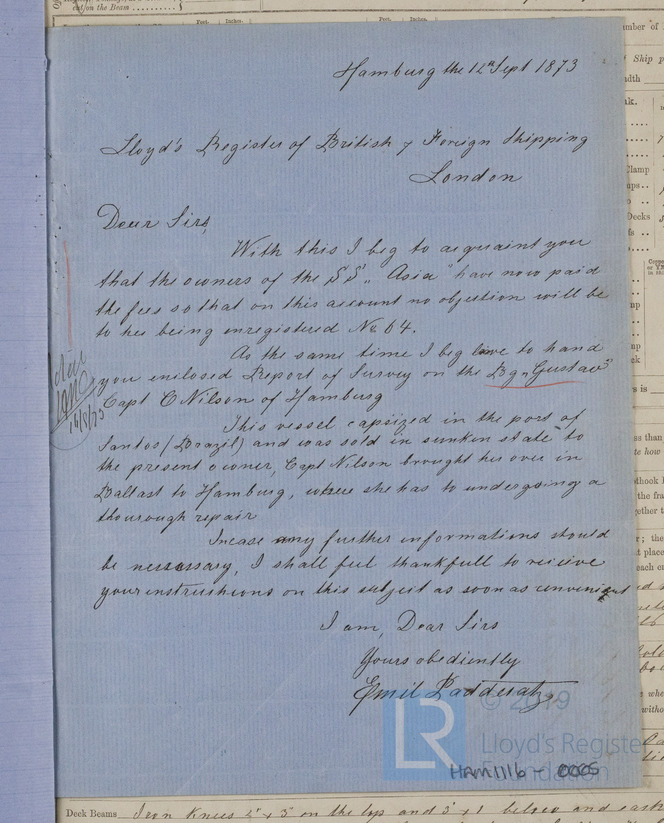 Hamburg the 12th Sept 1873
Lloyd's Register of British & Foreign Shipping
London
Dear Sirs,
With this I beg to acquaint you
that the owners of the SS „Asia" have now paid
the fees so that on this account no objection will be
to her being enregistered No 64.
At the same time I beg leave to hand
you enclosed Report of Survey on the Bg „Gustav"
Capt O Nilson of Hamburg
This vessel capsized in the port of
Santos (Brazil) and was sold in sunken state to
the present owner, Capt Nilson brought her over in
Ballast to Hamburg, where she has to undergoing a
thourough repair
Incase any further informations should
be nessessary, I shall feel thankfull to receive
your instrushions on this subject as soon as convenient
I am, Dear Sirs
Yours obediently
Emil Padderatz
14/9/73
© 2019
LR
Lloyd's Register
Foundation
HAM1116 - 0005
Deck Beams Iron Knees on the top and below and each